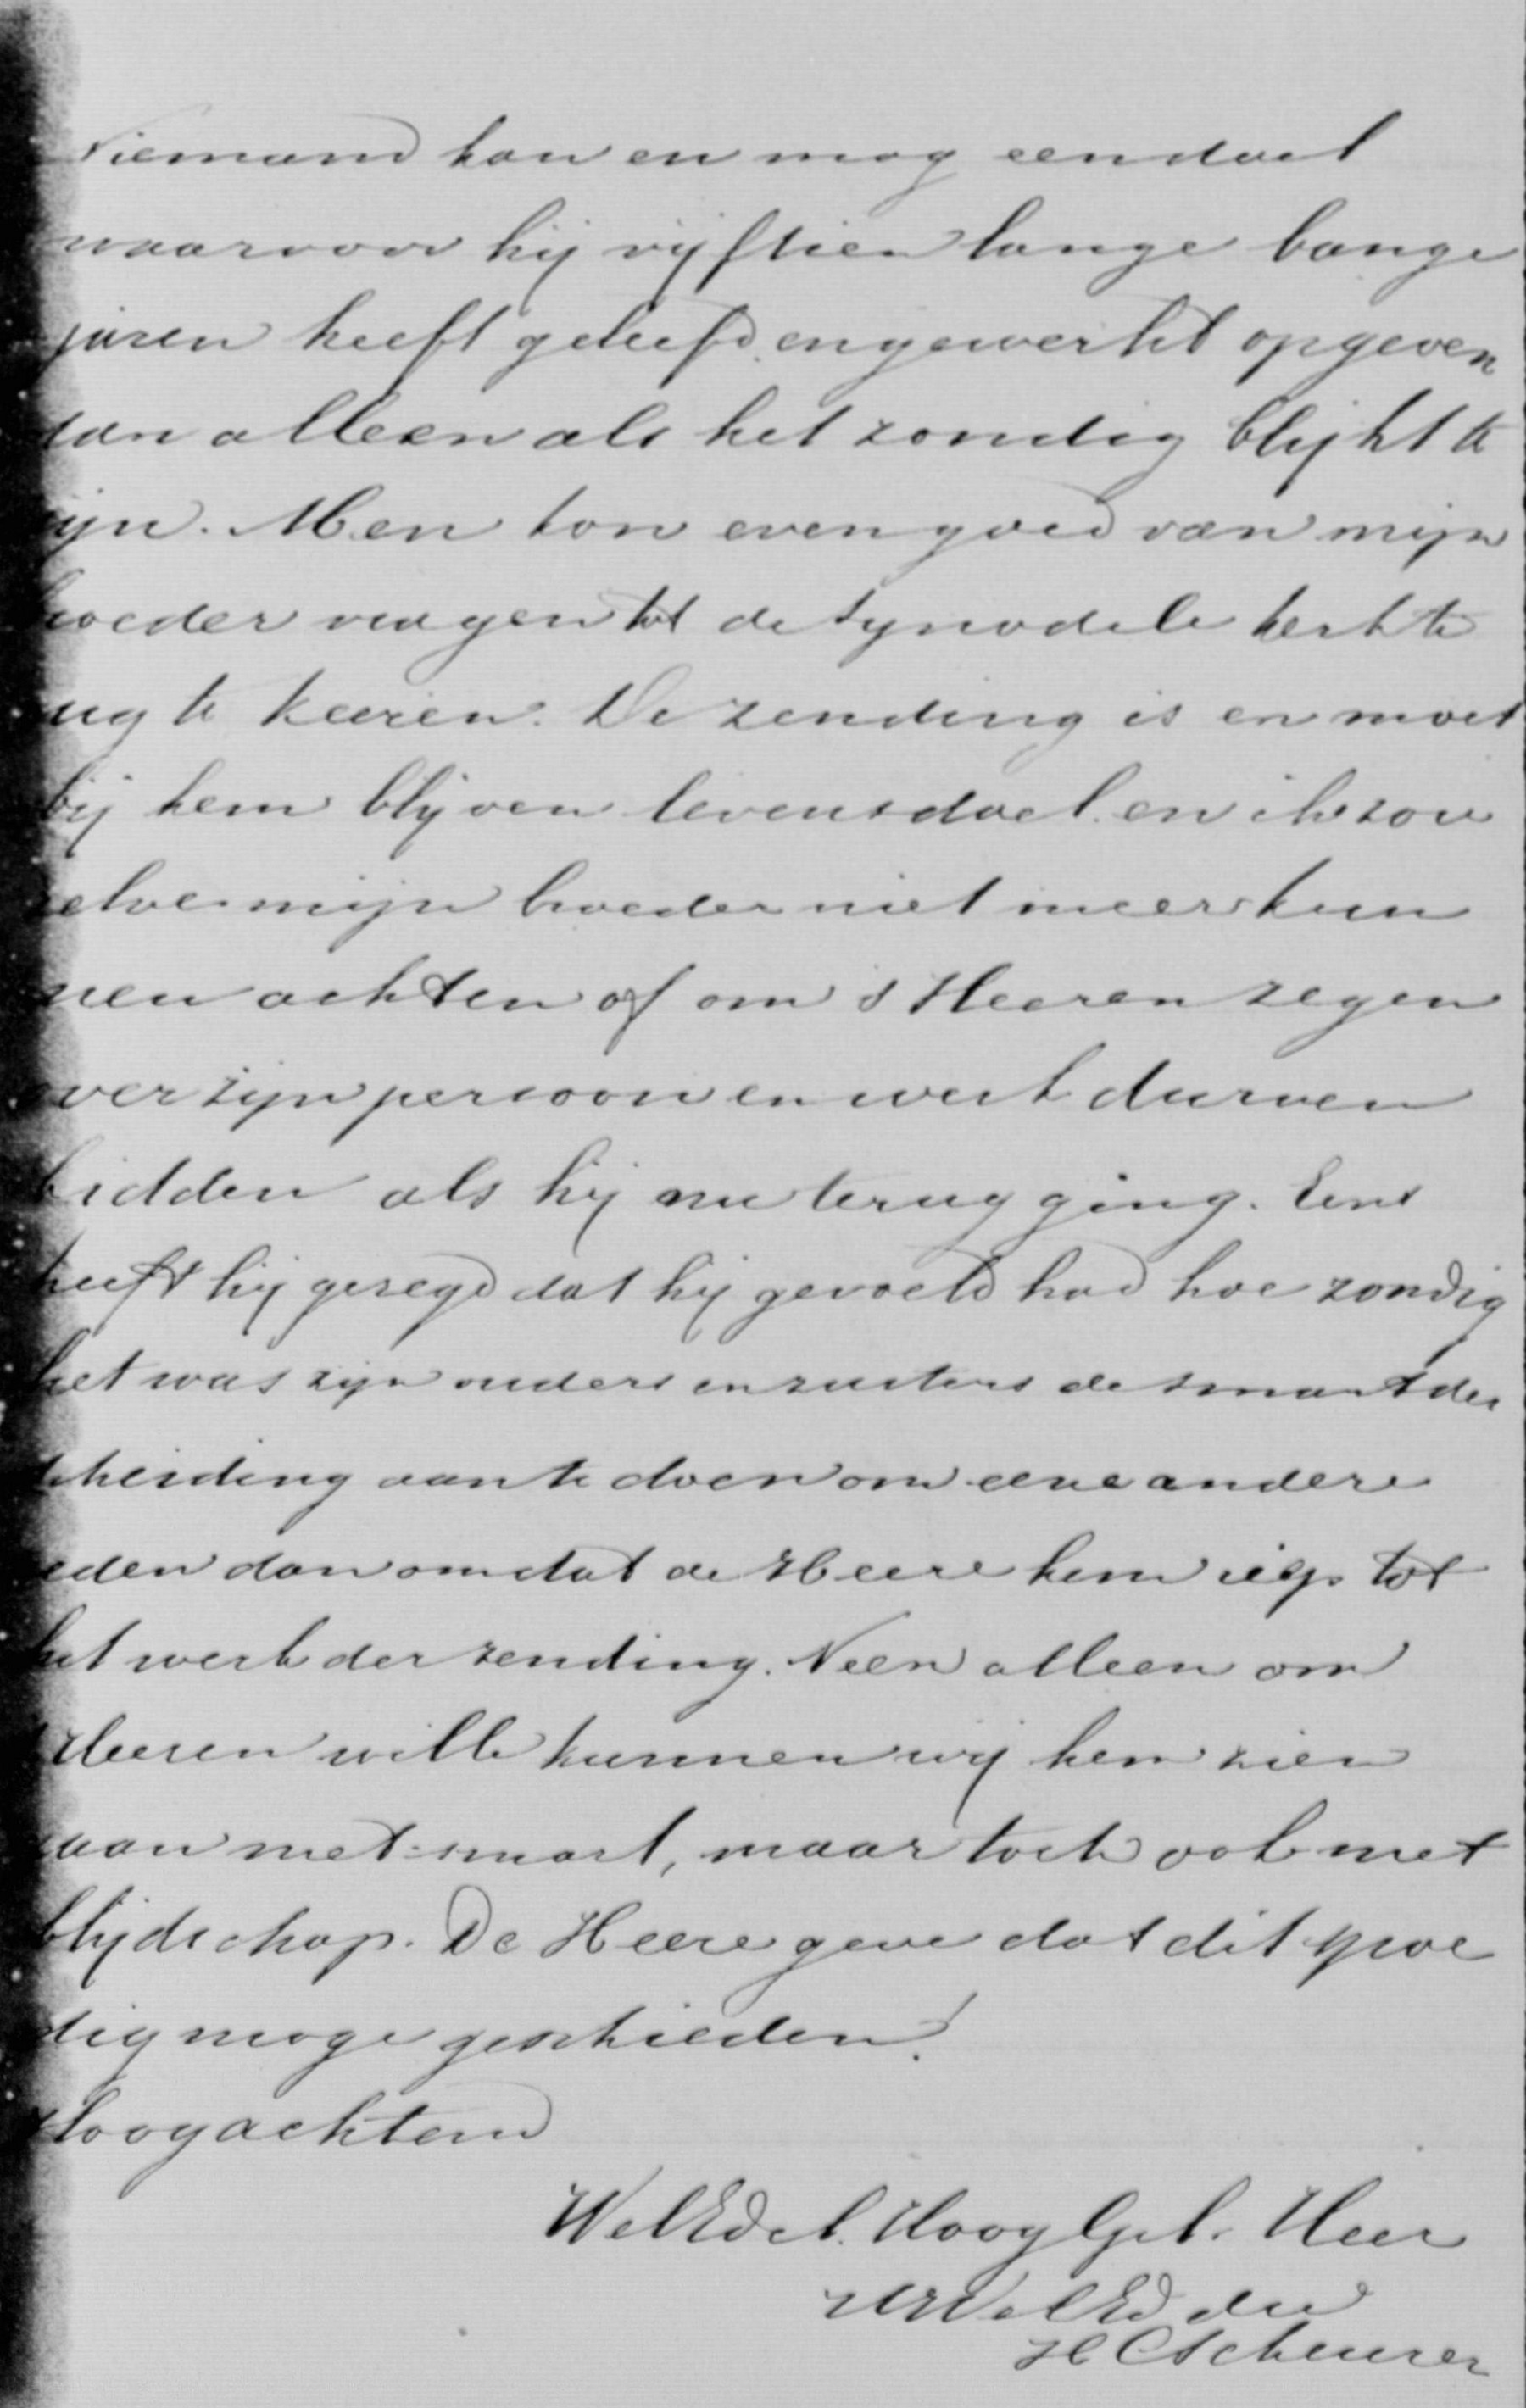 Niemand kan en mag een doel
waarvoor hij vijftien lange bange
jaren heeft geleefd en gewerkt opgeven
dan alleen als het zondig blijkt te
zijn. Men kon even goed van mijn
broeder vragen tot de synodale kerk te
rug te keeren. De zending is en moet
bij hem blijven levensdoel en ik zou
zelve mijn broeder niet meer kun
nen achten of om 's Heeren zegen
over zijn persoon en werk durven
bidden als hij nu terug ging. Eens
heeft hij gezegd dat hij gevoeld had hoe zondig
het was zijn ouders en zusters de smart der
scheiding aan te doen om eene andere
reden dan omdat de Heere hem riep tot
het werk der zending. Neen alleen om
Heeren wille kunnen wij hem zien
gaan met smart, maar toch ook met
blijdschap. De Heere geve dat dit spoe
dig moge geschieden!
Hoogachtend
WelEdel. HoogGel. Heer
UWelEd dw
H C Scheurer